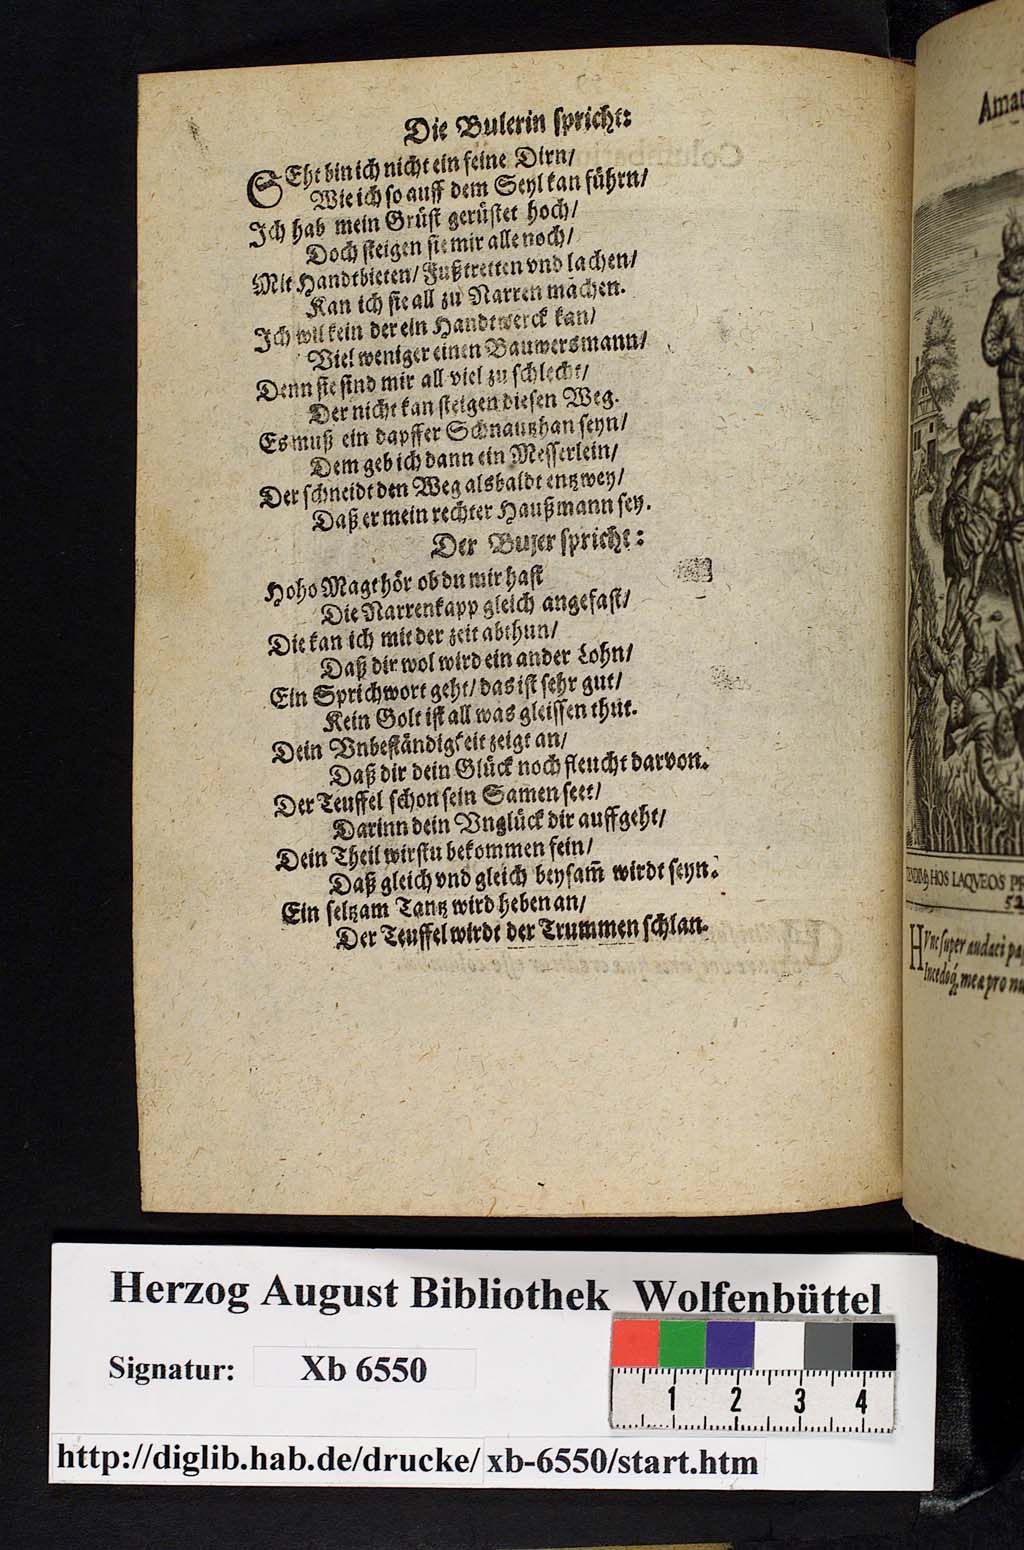 Die Bulerin spricht:
SEht bin ich nicht ein feine Dirn/
Wie ich so auff dem Seyl kan führn/
Ich hab mein Grüst gerüstet hoch/
Doch steigen sie mir alle noch/
Mit Handtbieten/ Fußtretten vnd lachen/
Kan ich sie all zu Narren machen.
Ich wil kein der ein Handtwerck kan/
Viel weniger einen Bauwersmann/
Denn sie sind mir all viel zu schlecht/
Der nicht kan steigen diesen Weg.
Es muß ein dapffer Schnautzhan seyn/
Dem geb ich dann ein Messerlein/
Der schneidt den Weg alsbaldt entzwey/
Daß er mein rechter Haußmann sey.
Der Buler spricht:
Hoho Magt hör ob du mir hast
Die Narrenkapp gleich angefast/
Die kan ich mit der zeit abthun/
Daß dir wol wird ein ander Lohn/
Ein Sprichwort geht/ das ist sehr gut/
Kein Golt ist all was gleissen thut.
Dein Vnbeständigkeit zeigt an/
Daß dir dein Glück noch fleucht darvon.
Der Teuffel schon sein Samen seet/
Darinn dein Vnglück dir auffgeht/
Dein Theil wirstu bekommen fein/
Daß gleich vnd gleich beysam̃ wirdt seyn.
Ein seltzam Tantz wird heben an/
Der Teuffel wirdt der Trummen schlan.
HOS LAQVEOS
52
HVnc super audaci
Incedoq́, mea pro
Herzog August Bibliothek Wolfenbüttel
Signatur: Xb 6550
1 2 3 4
http://diglib.hab.de/drucke/ xb-6550/start.htm